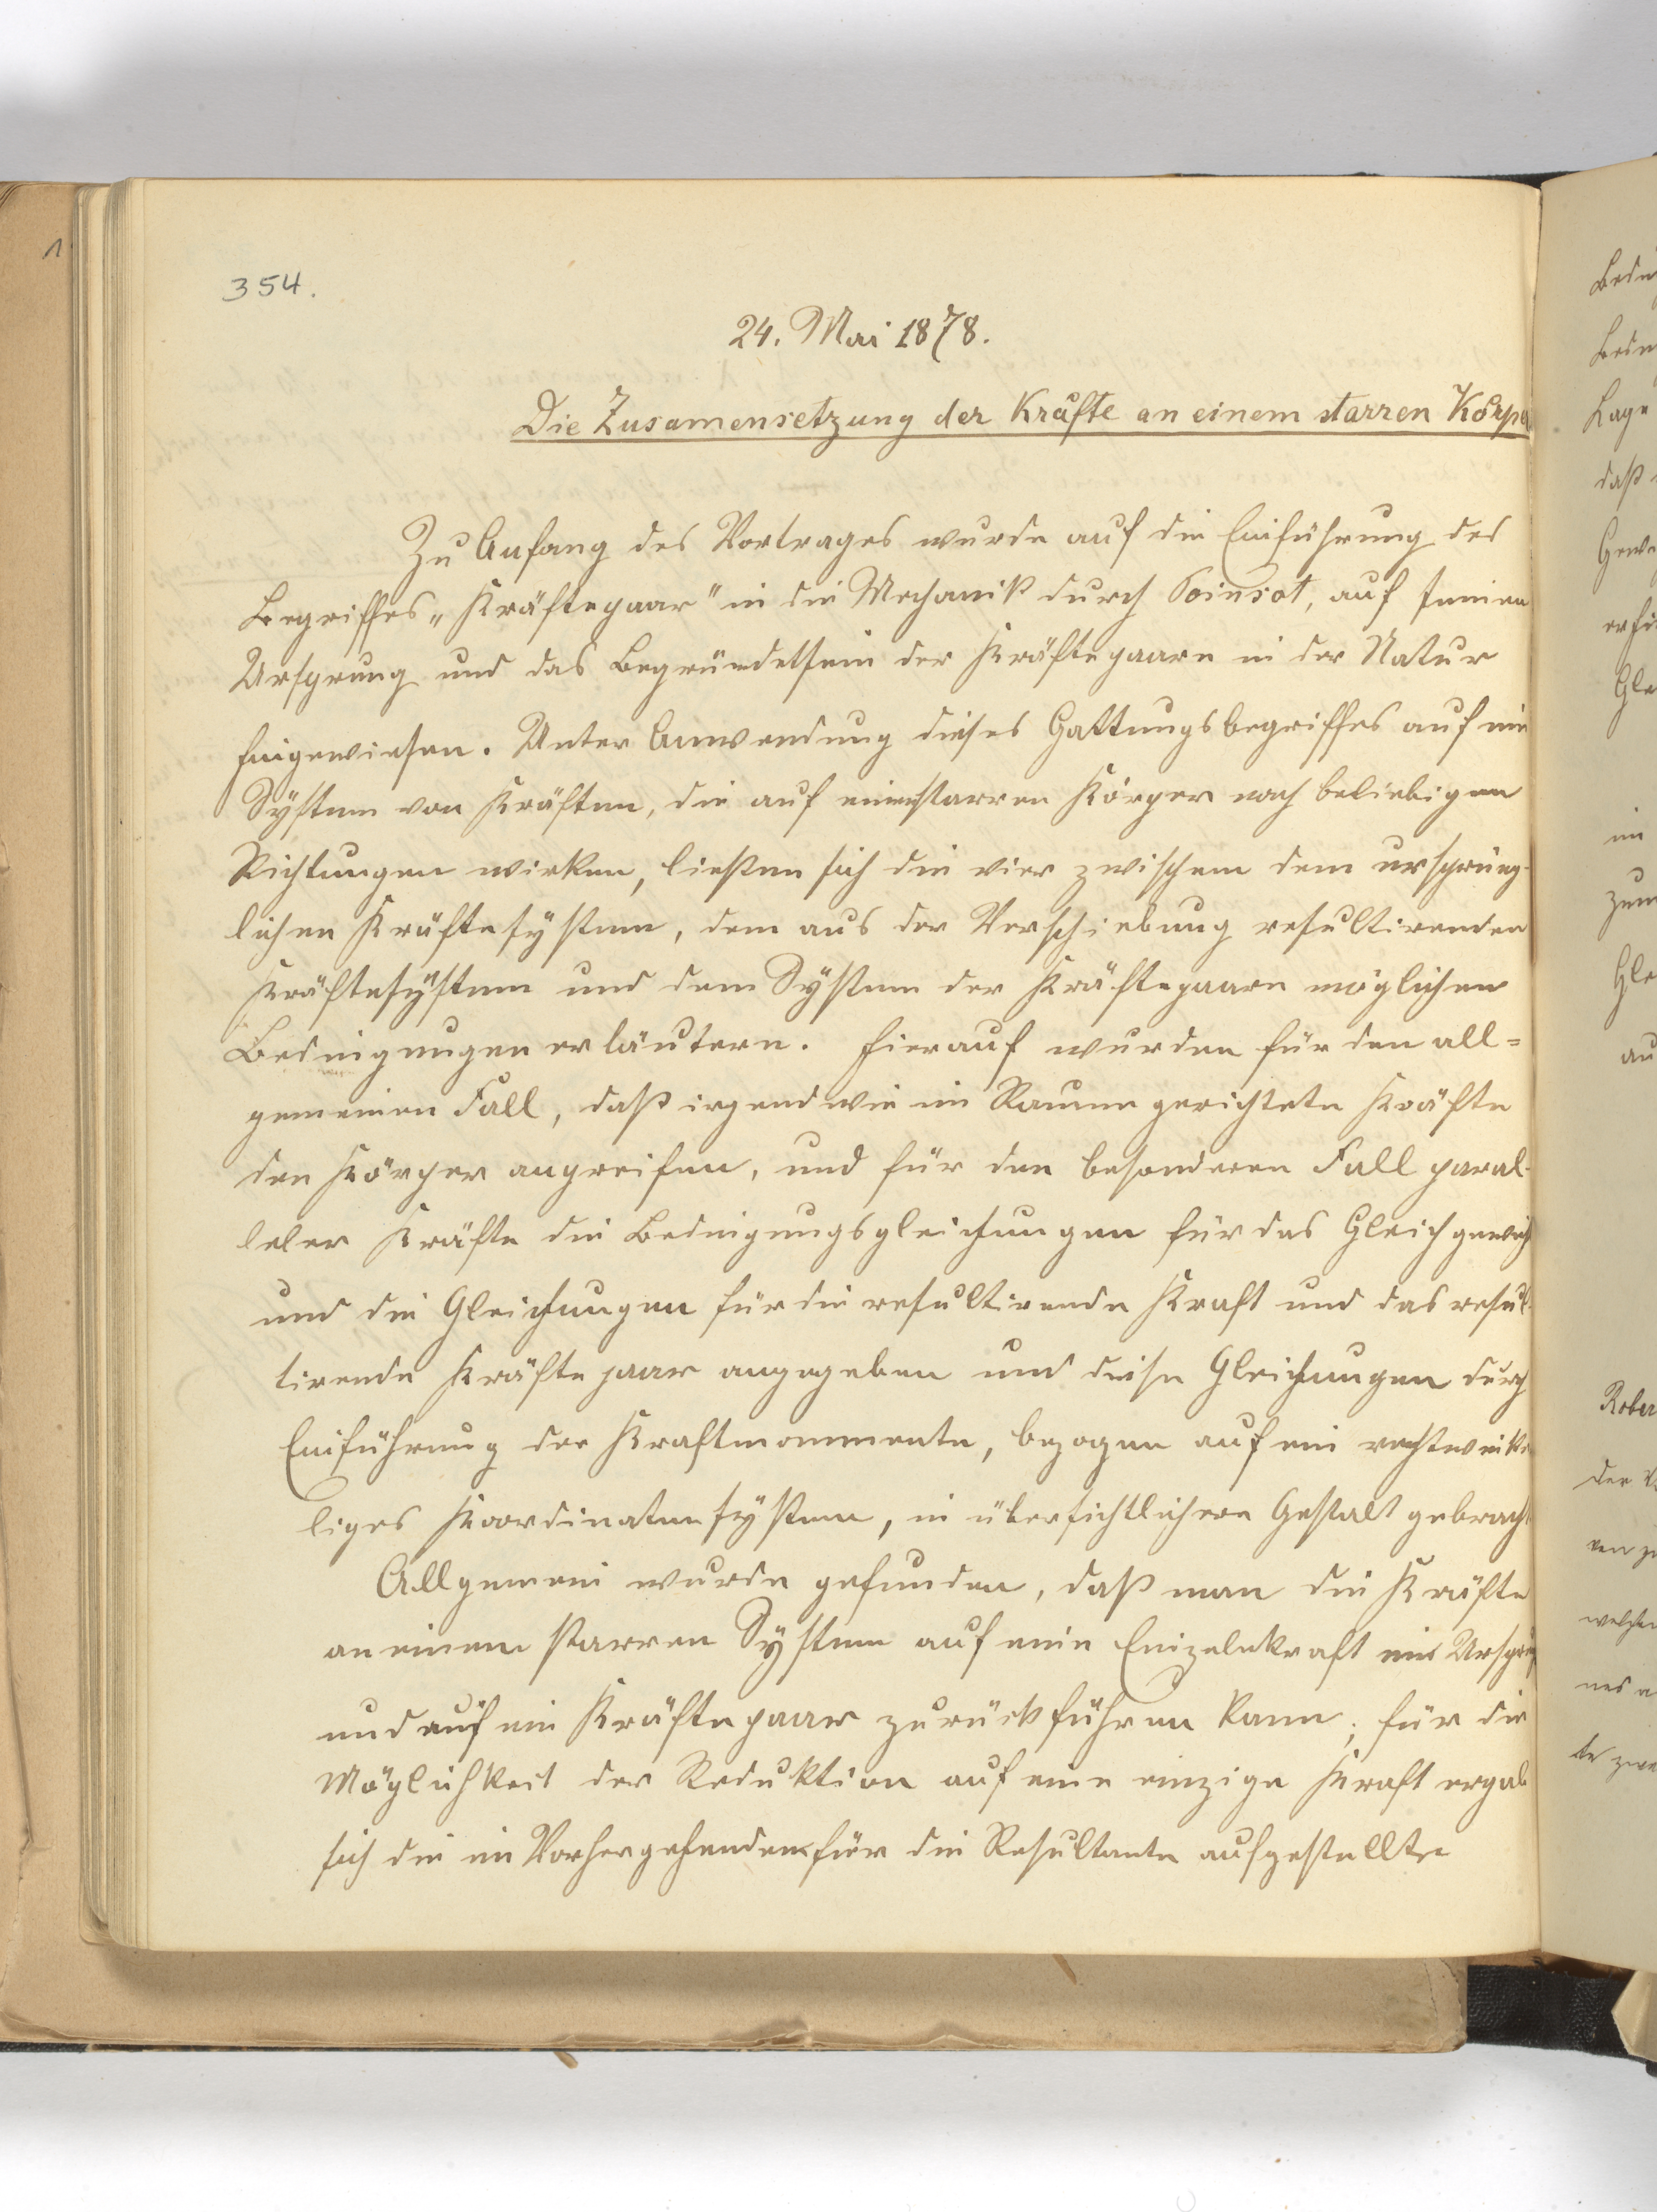 354.
24. Mai 1878.
Die Zusamensetzung der Kräfte an einem starren Körpe
Zu Anfang des Vortrages wurde auf die Einführung des
Begriffes „Kräftepaar" in die Mechanik durch Poinsot, auf seinen
Ursprung und das Begründetsein der Kräftepaare in der Natur
hingewiesen. Unter Anwendung dieses Gattungsbegriffes auf ein
System von Kräften, die auf einen starren Körper nach beliebigen
Richtungen wirken, ließen sich die vier zwischen dem ursprüng-
lichen Kräftesystem, dem aus der Verschiebung resultirenden
Kräftesystem und dem System der Kräftepaare möglichen
Bedingungen erläutern. Hierauf wurden für den all=
gemeinen Fall, daß irgendwie im Raume gerichtete Kräfte
den Körper angreifen, und für den besonderen Fall paral-
leler Kräfte die Bedingungsgleichungen für das Gleichgewich
und die Gleichungen für die resultirende Kraft und das resul-
tirende Kräftepaar angegeben und diese Gleichungen durch
Einführung der Kraftmommente, bezogen auf ein rechtwinke
liges Koordinatensystem, in übersichtlichere Gestalt gebracht
Allgemein wurde gefunden, daß man die Kräfte
an einem starren System auf eine Einzelnkraft im Ursprung
und auf ein Kräftepaar zurückführen kann; für die
Möglichkeit der Reduktion auf eine einzige Kraft ergab
sich die im Vorhergehenden für die Resultante aufgestellte
Lage
daß
Gle
im
zum
Gle
au
Rober
der V
ven zu
welche
nes a
te zwe